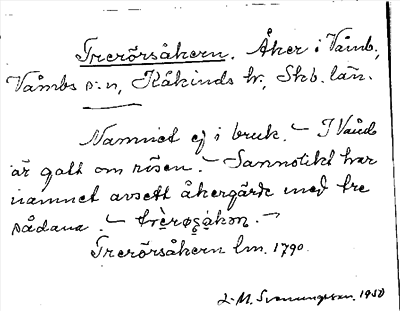 Trerörsåkern. Åker i Våmb,
Våmbs s:n, Kåkinds hd, Skb. län.
Namnet ej i bruk. – I Våmb
är gott om rösen. – Sannolikt har
namnet avsett åkergärde med tre
sådana. –
Trerörsåkern lm. 1790.
L-M. Svenungsson. 1950